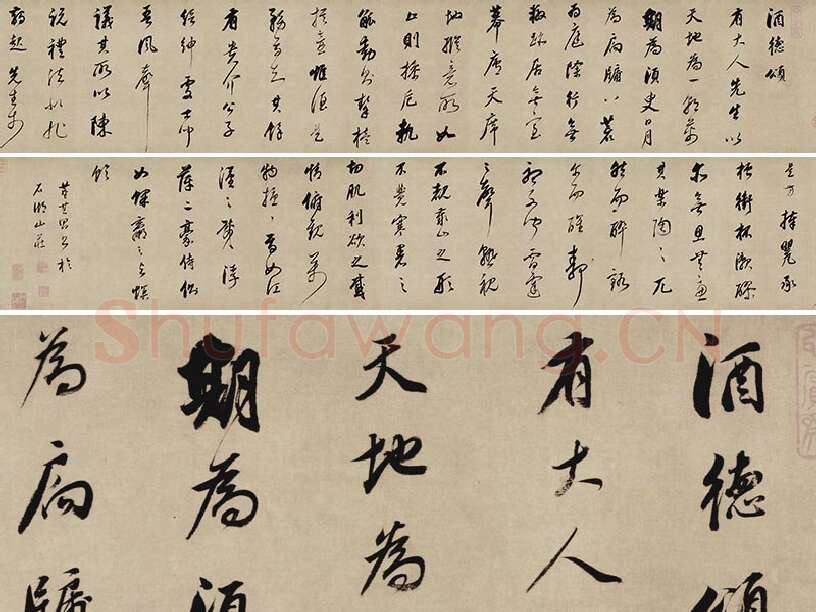 酒德頌
有大人先生以
天地為一朝萬
期為須臾日月
為扃牖八荒
為庭除行無
轍跡居無室
幕廬天席
地縱意所如
止則操卮執
觚動則挈榼
提壺唯酒是
務焉知其餘
有貴介公子
搢紳處士聞
吾風聲
議其所以陳
說禮法是非
鋒起先生於
是方捧甖承
槽銜杯漱醪
無思無慮
其樂陶々兀
然而醉豁
爾而醒靜
聽不聞雷霆
之聲熟視
不睹泰山之形
不覺寒暑之
切肌利欲之感
情俯觀萬
物擾々焉如江
漢之載浮
萍二豪侍側
如蜾蠃之與螟
蛉
董其昌書於
石湖山莊
Shufawang.CN
酒德頌
有大人
天地為
期為須
為扃牖